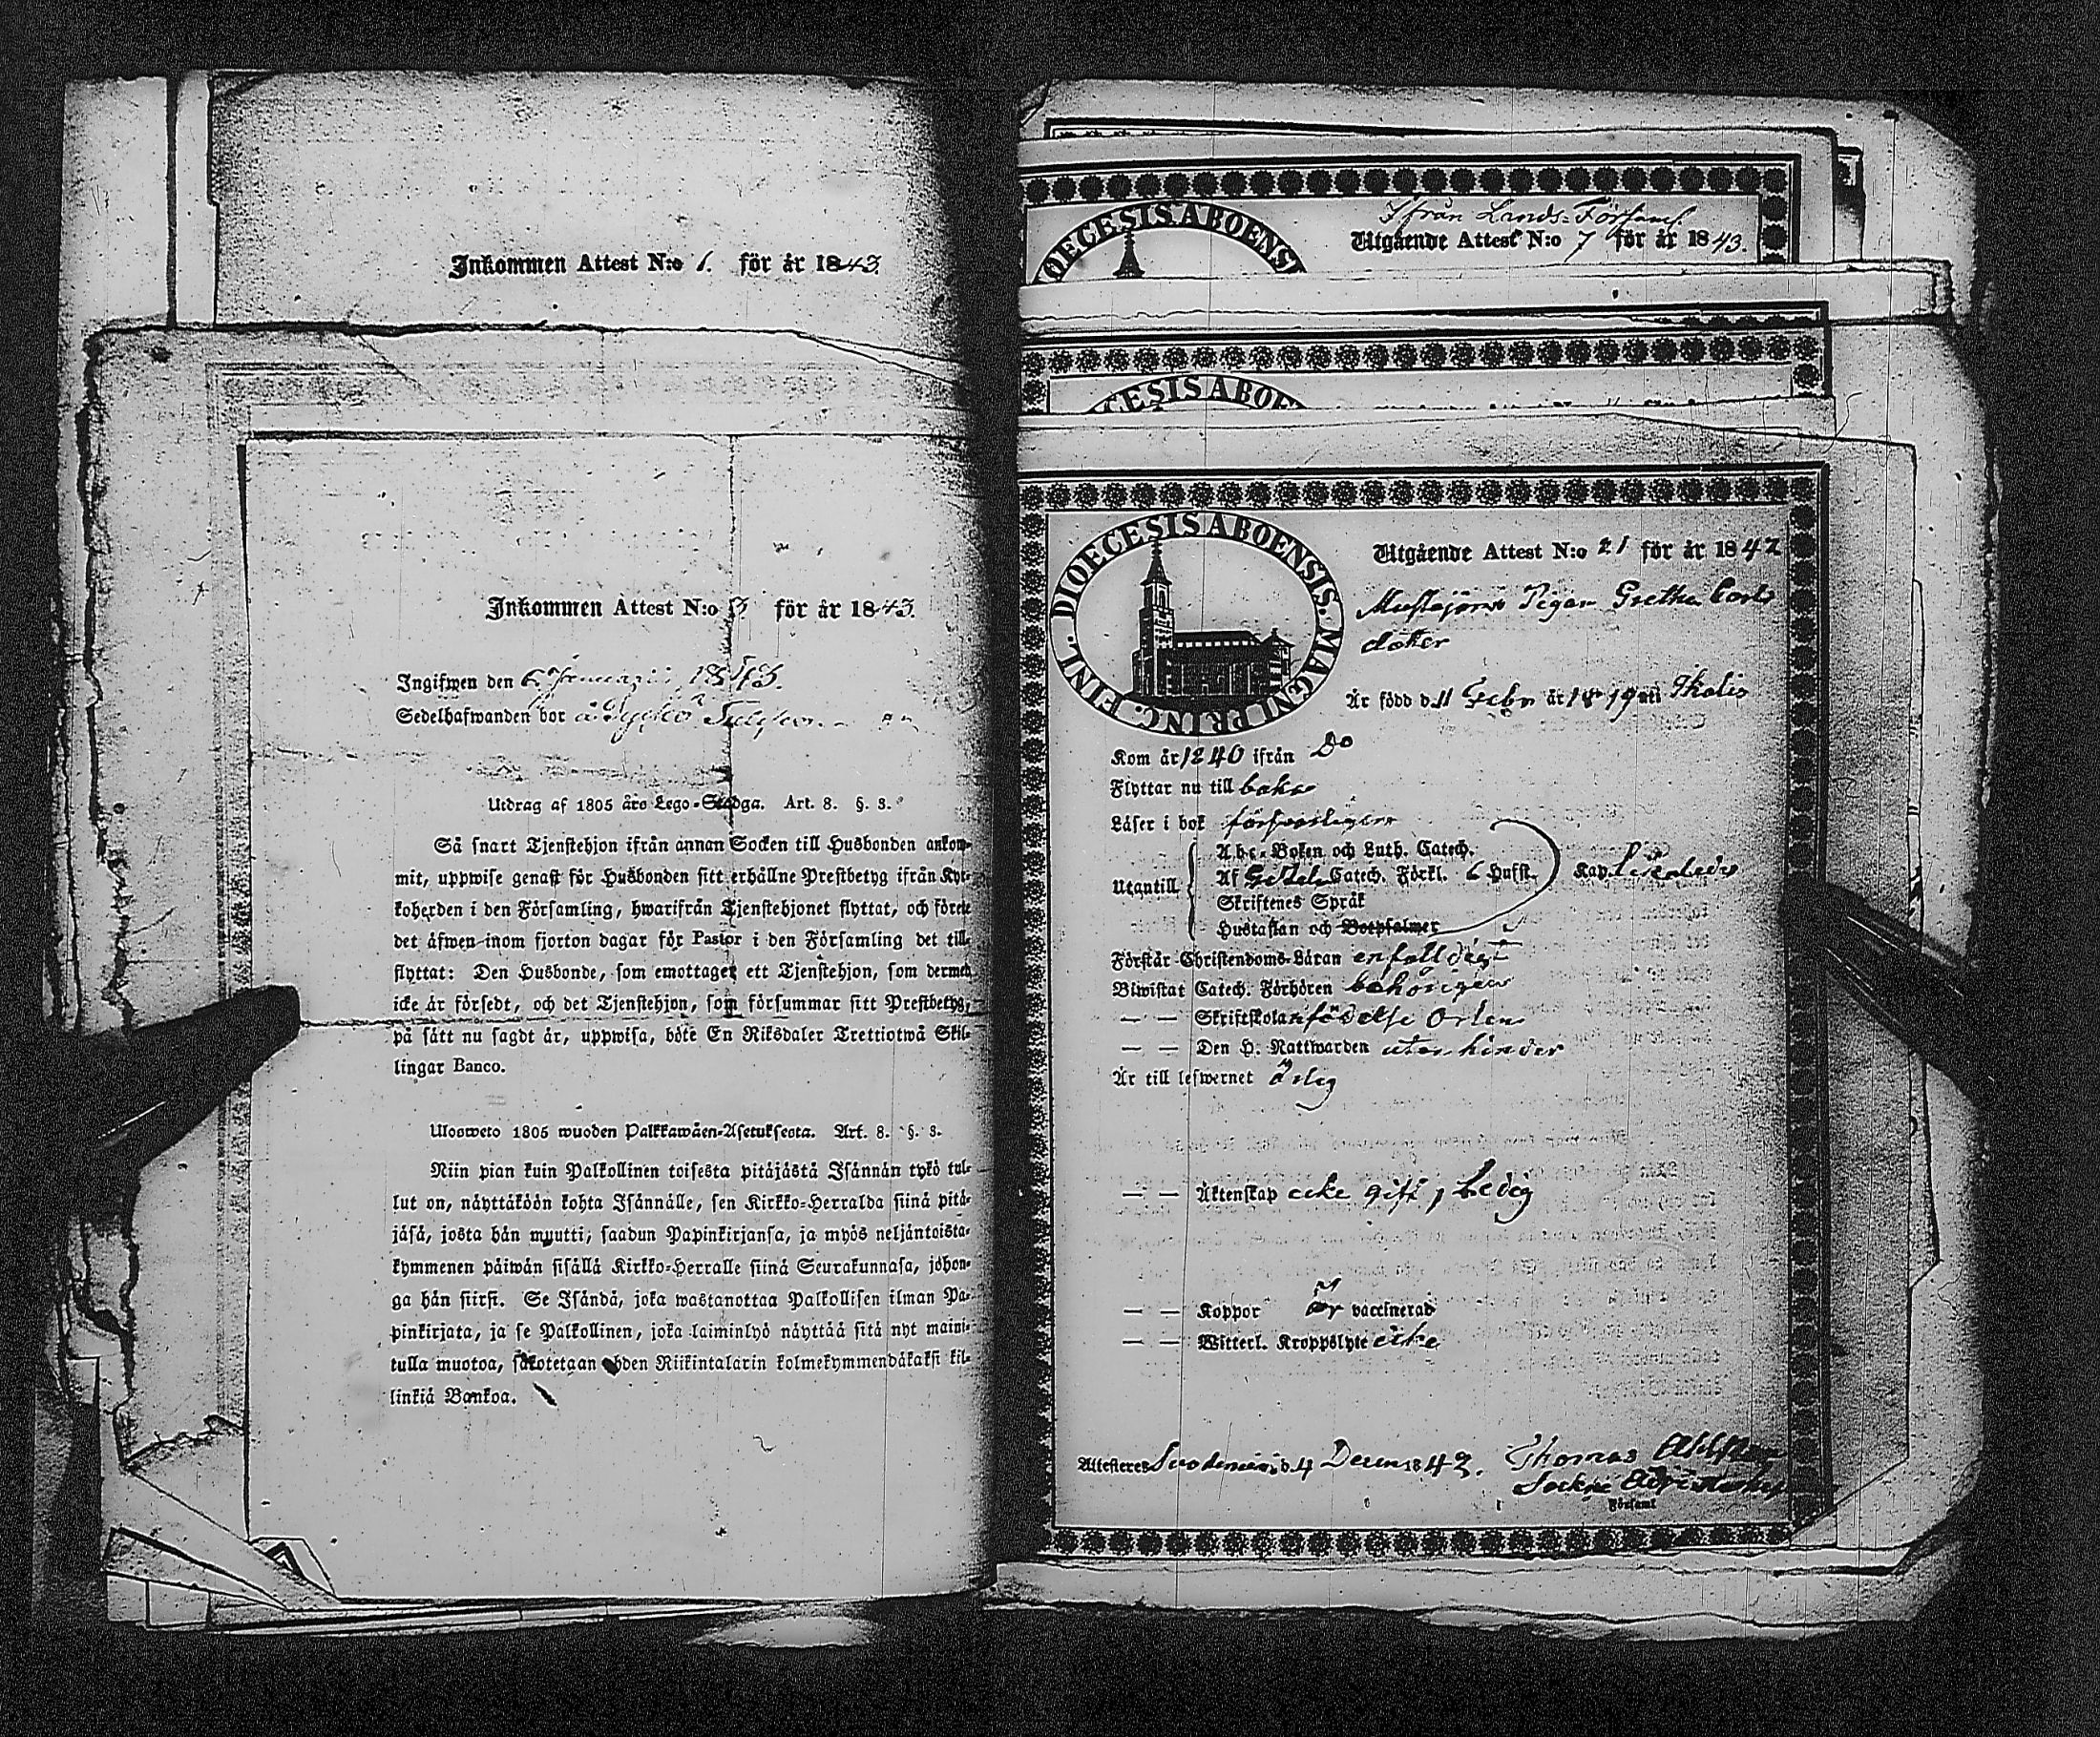 Inkommen Attest N:o 1. för år 1843.
Inkommen Attest N:o 3. för år 1843.
Ingifwen den 6 Januarii 1843.
Sedelhafwanden bor å
Utdrag af 1805 åro Lego-Stadga. Art. 8. §. 3.
Så snart Tjenstehjon ifrån annan Socken till Husbonden ankom-
mit, uppwise genast för Husbonden sitt erhållne Prestbetyg ifrån Kyr-
koherden i den Församling, hwarifrån Tjenstehjonet flyttat, och förete
det åfwen inom fjorton dagar för Pastor i den Församling det till-
flyttat: Den Husbonde, som emottager ett Tjenstehjon, som dermed
icke år försedt, och det Tjenstehjon, som försummar sitt Prestbetyg,
på sått nu sagdt år, uppwisa, böte En Riksdaler Trettiotwå Skil-
lingar Banco.
Ulosweto 1805 wuoden Palkkawåen-Asetuksesta. Art. 8. §. 3.
Niin pian kuin Palkollinen toisesta pitåjåstå Isånnån tykö tul-
lut on, nåyttåköön kohta Isånnålle, sen Kirkko-Herralda siinå pitå-
jåså, josta hån muutti, saadun Papinkirjansa, ja myös neljåntoista-
kymmenen påiwån sisållå Kirkko-Herralle siinå Seurakunnasa, johon-
ga hån siirsi. Se Isåndå, joka wastanottaa Palkollisen ilman Pa-
pinkirjata, ja se Palkollinen, joka laiminlyö nåyttåå sitå nyt maini-
tulla muotoa, sakotetaan yhden Riikintalarin kolmekymmendåkaksi kil-
linkiå Bankoa.
DIOECESIS ABOENSI
Ifrån Lands-Församl
Utgående Attest N:o 7 för år 1843.
CESIS ABOE
DIOECESIS ABOENSIS. MAGNI PRINC. FINL.
Utgående Attest N:o 21 för år 1842
Pigan Gretha Carls
doter
År född d. 11 Febr år 1819 uti
Kom år 1840 ifrån Do
Flyttar nu till baka
Låser i bok försvarligen
Utantill
Abc-Boken och Luth. Catech.
Af Catech. Förkl. 6 Hufst.
Skriftenes Språk
Hustaflan och Botpsalmer
Kan
Förstår Christendoms-Låran enfalldigt
Biwistat Catech. Förhören behörigen
— — Skriftskolan födelse Orten
— — Den H. Nattwarden utan hinder
År till lefwernet ärlig
— — Åktenskap icke gift, Ledig
— — Koppor Är vaccinerad
— — Witterl. Kroppslyte icke
Attesteres Suodenniemi d. 4 Decem 1842. Thomas
Sockne Adjunct
Församl